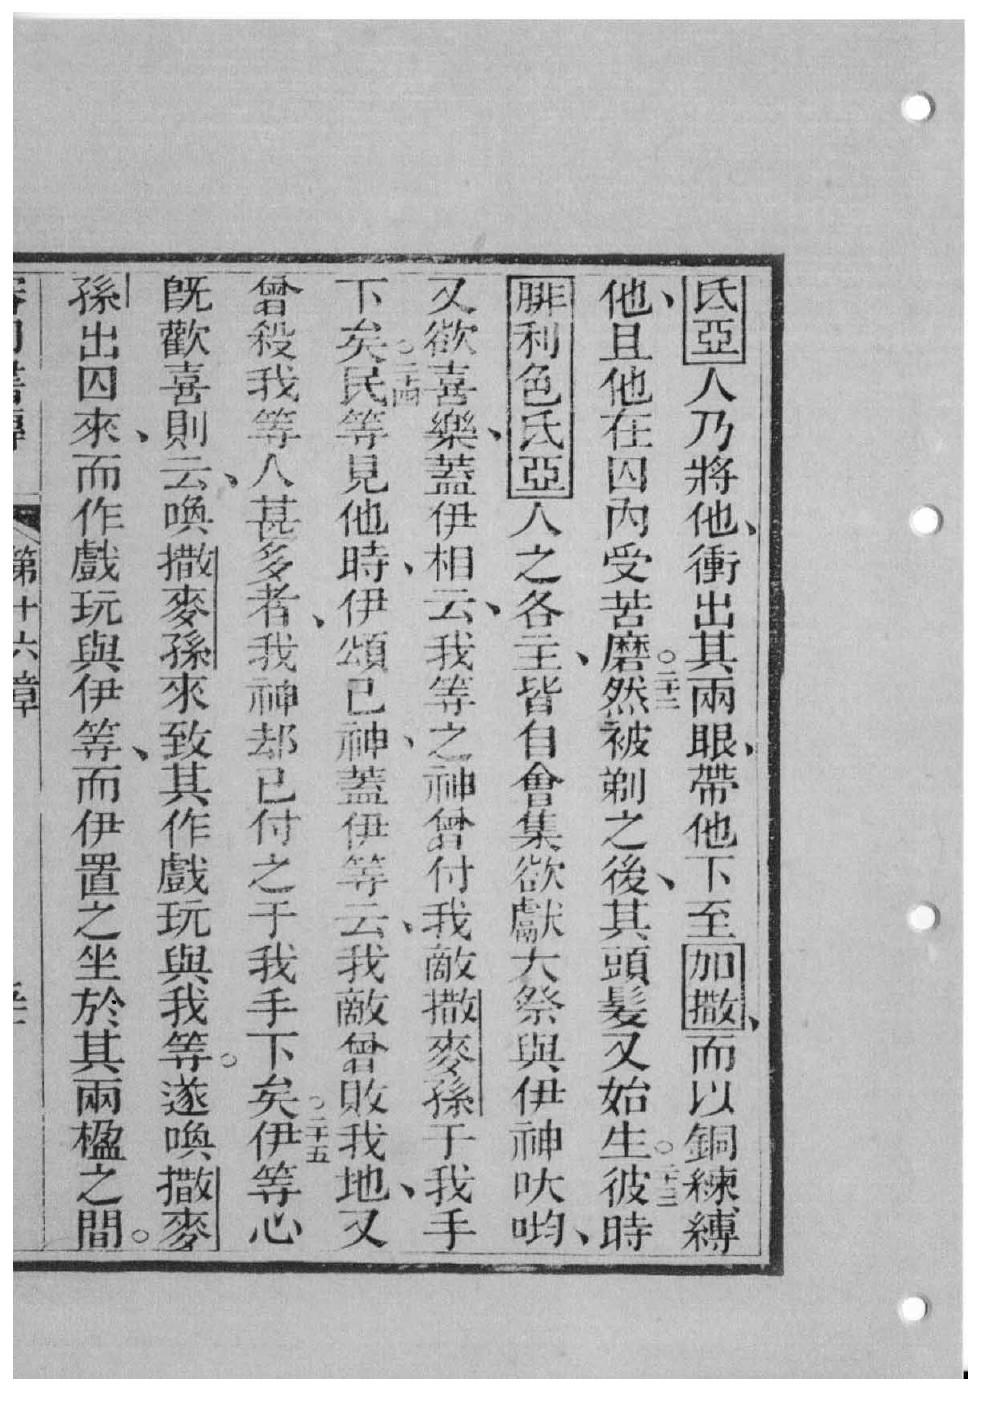 氏亞人乃將他、衝出其兩眼、帶他下至加撒、而以銅練縛
他、且他在囚內受苦磨○二十二然被剃之後、其頭髮又始生○二十三彼時
腓利色氏亞人之各主、皆自會集欲獻大祭與伊神吠啲、
又欲喜樂、蓋伊相云、我等之神曾付我敵撒麥孫于我手
下矣○二十四民等見他時、伊頌己神、蓋伊等云、我敵曾敗我地、又
曾殺我等人甚多者、我神却已付之于我手下矣○二十五伊等心
既歡喜則云、喚撒麥孫來致其作戲玩與我等。遂喚撒麥
孫出囚來、而作戲玩與伊等、而伊置之坐於其兩楹之間。
第十六章